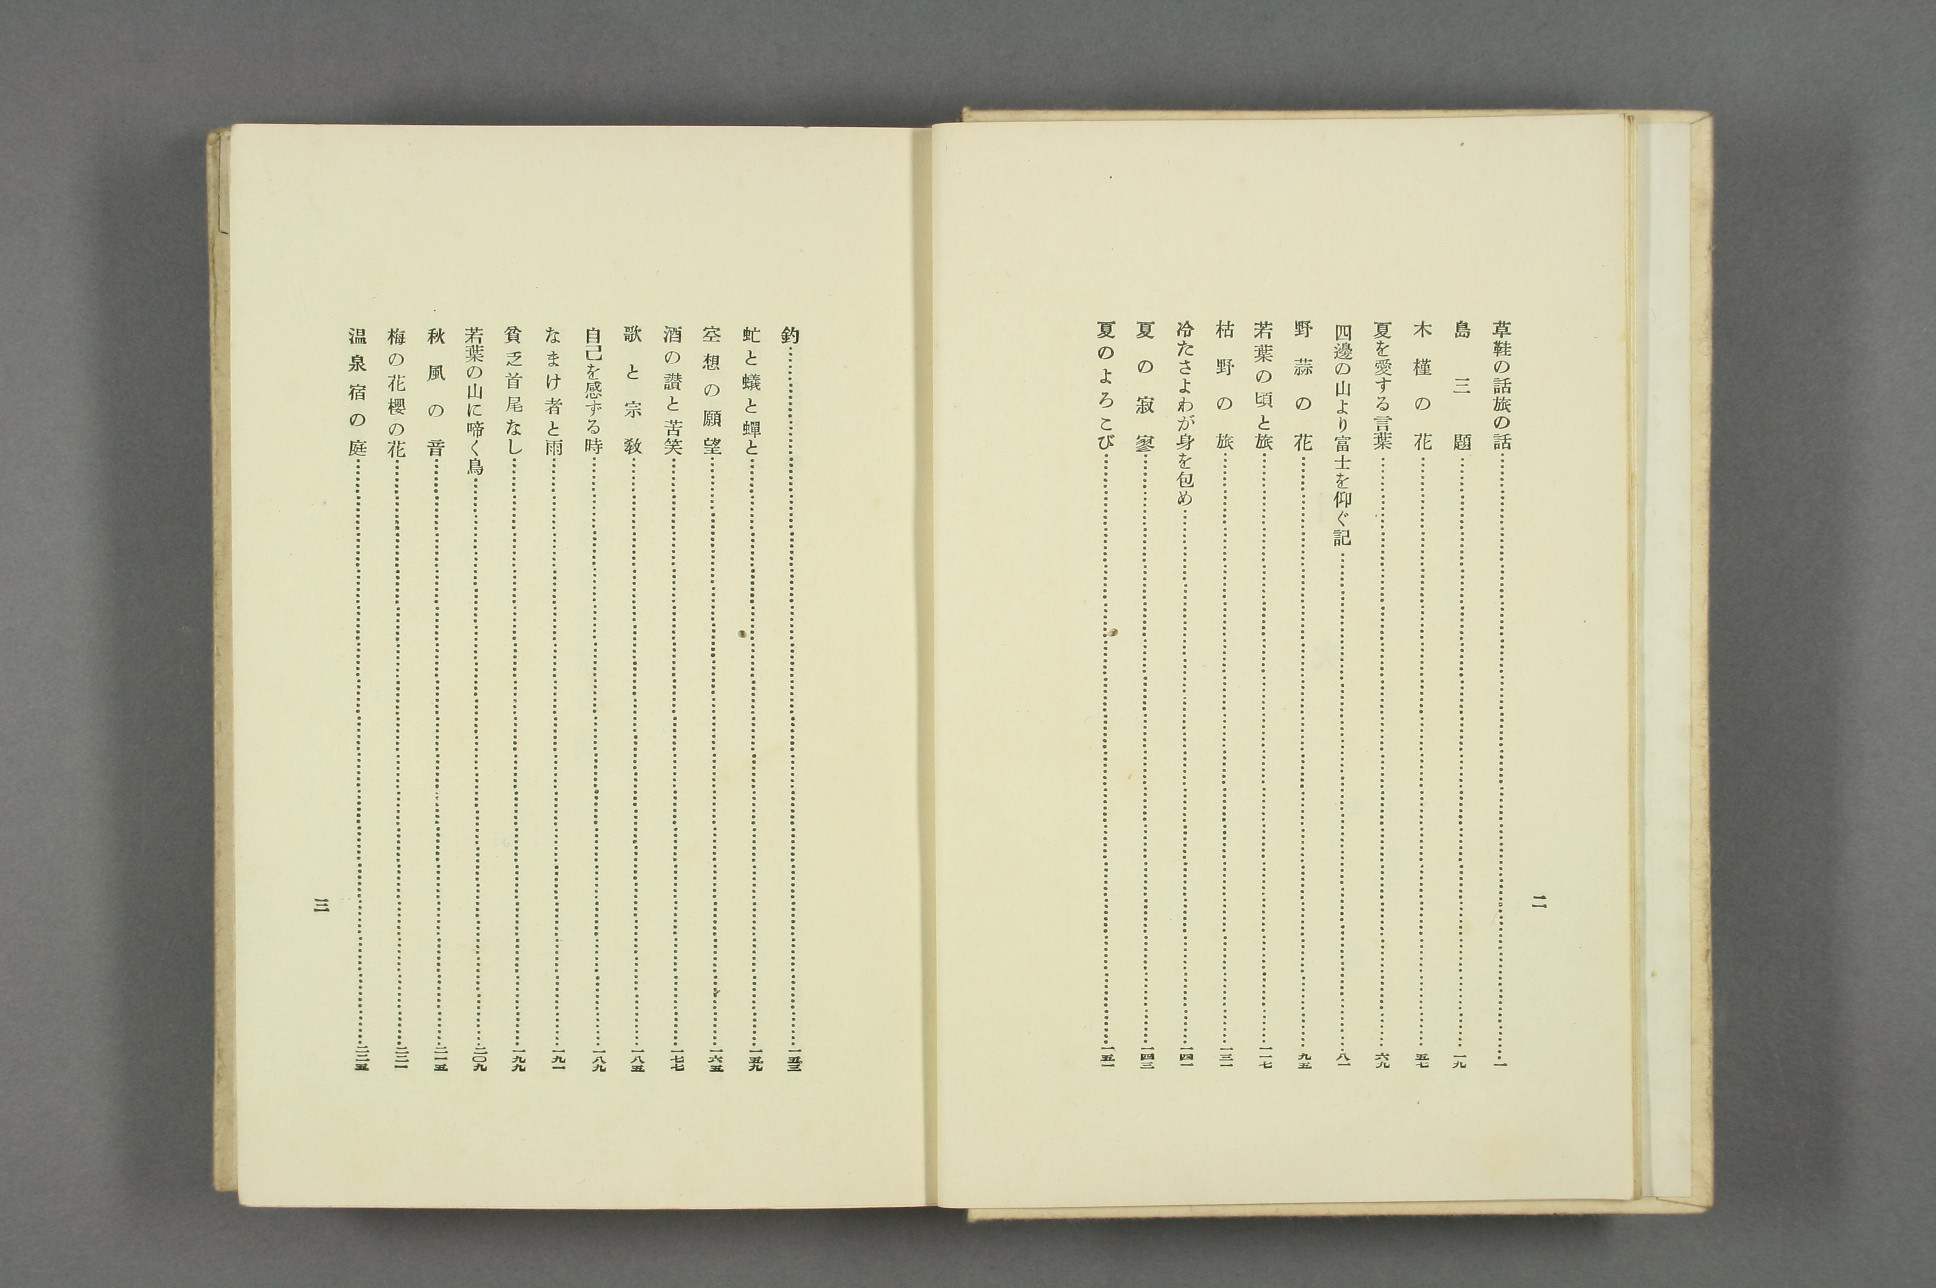 草鞋の話旅の話……一
島三題……一九
木槿の花……五七
夏を愛する言葉……六九
四邊の山より富士を仰ぐ記……八一
野蒜の花……九五
若葉の頃と旅……一一七
枯野の旅……一三一
冷たさよわが身を包め……一四一
夏の寂寥……一四三
夏のよろこび……一五一
二
釣……一五三
虻と蟻と蟬と……一五九
空想の願望……一六五
酒の讃と苦笑……一七七
歌と宗教……一八五
自己を感ずる時……一八九
なまけ者と雨……一九一
貧乏首尾なし……一九九
若葉の山に啼く鳥……二〇九
秋風の音……二一五
梅の花櫻の花……二三一
温泉宿の庭……二三五
三